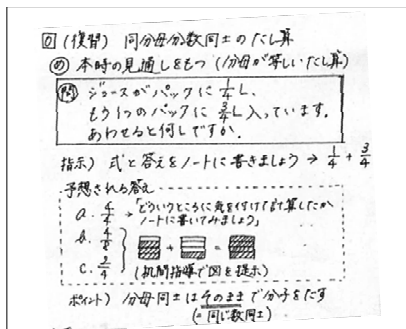 0 (復習) 同分母分数同士のたし算
め 本時の見通しをもつ (分母が等しいたし算)
問 ジュースがパックに 1/4 L、
もう1つのパックに 3/4 L 入っています。
あわせると何Lですか。
指示) 式と答えをノートに書きましょう → 1/4 + 3/4
予想される答え
a. 4/4 → 「どういうところに気を付けて計算したか
ノートに書いてみましょう」
b. 4/8
+ =
c. 3/4
(机間指導で図を提示)
ポイント) 分母同士はそのままで分子をたす
(= 同じ数同士)